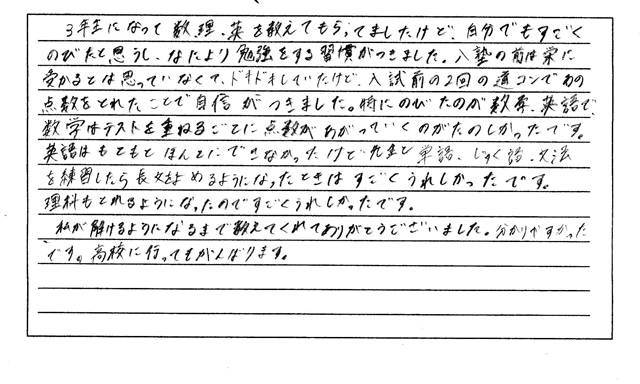 3年生になって数、理、英を教えてもらってましたけど、自分でもすごく
のびたと思うし、なにより勉強をする習慣がつきました。入塾の前は栄に
受かるとは思っていなくて、ドキドキしていたけど、入試前の2回の道コンであの
点数をとれたことで自信がつきました。特にのびたのが数学、英語で、
数学はテストを重ねるごとに点数があがっていくのがたのしかったです。
英語はもともとほんとにできなかったけど先生と単語、じゅく語、文法
を練習したら長文をよめるようになったときはすごくうれしかったです。
理科もとれるようになったのですごくうれしかったです。
私が解けるようになるまで教えてくれてありがとうございました。分かりやすかった
です。高校に行ってもがんばります。